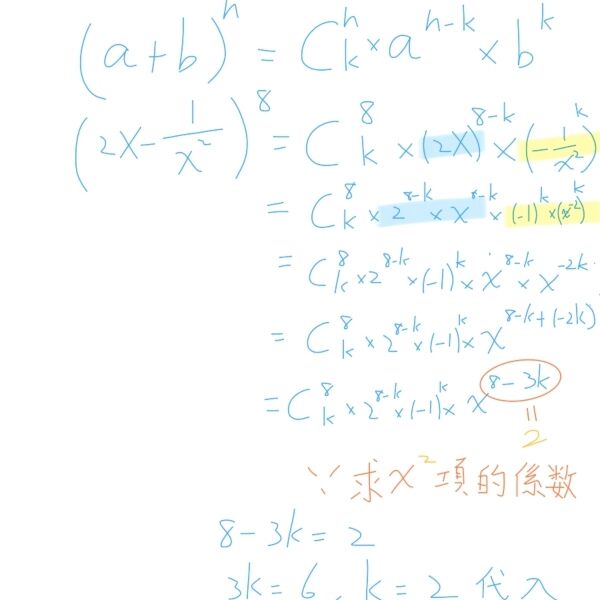 (a+b)^n = C^n_k × a^{n-k} × b^k
(2x - 1/x^2)^8 = C^8_k × (2x)^{8-k} × (-1/x^2)^k
= C^8_k × 2^{8-k} × x^{8-k} × (-1)^k × (x^{-2})^k
= C^8_k × 2^{8-k} × (-1)^k × x^{8-k} × x^{-2k}
= C^8_k × 2^{8-k} × (-1)^k × x^{8-k+(-2k)}
= C^8_k × 2^{8-k} × (-1)^k × x^{8-3k}
=
2
∵ 求 x^2 項的係數
8-3k = 2
3k = 6 , k = 2 代入